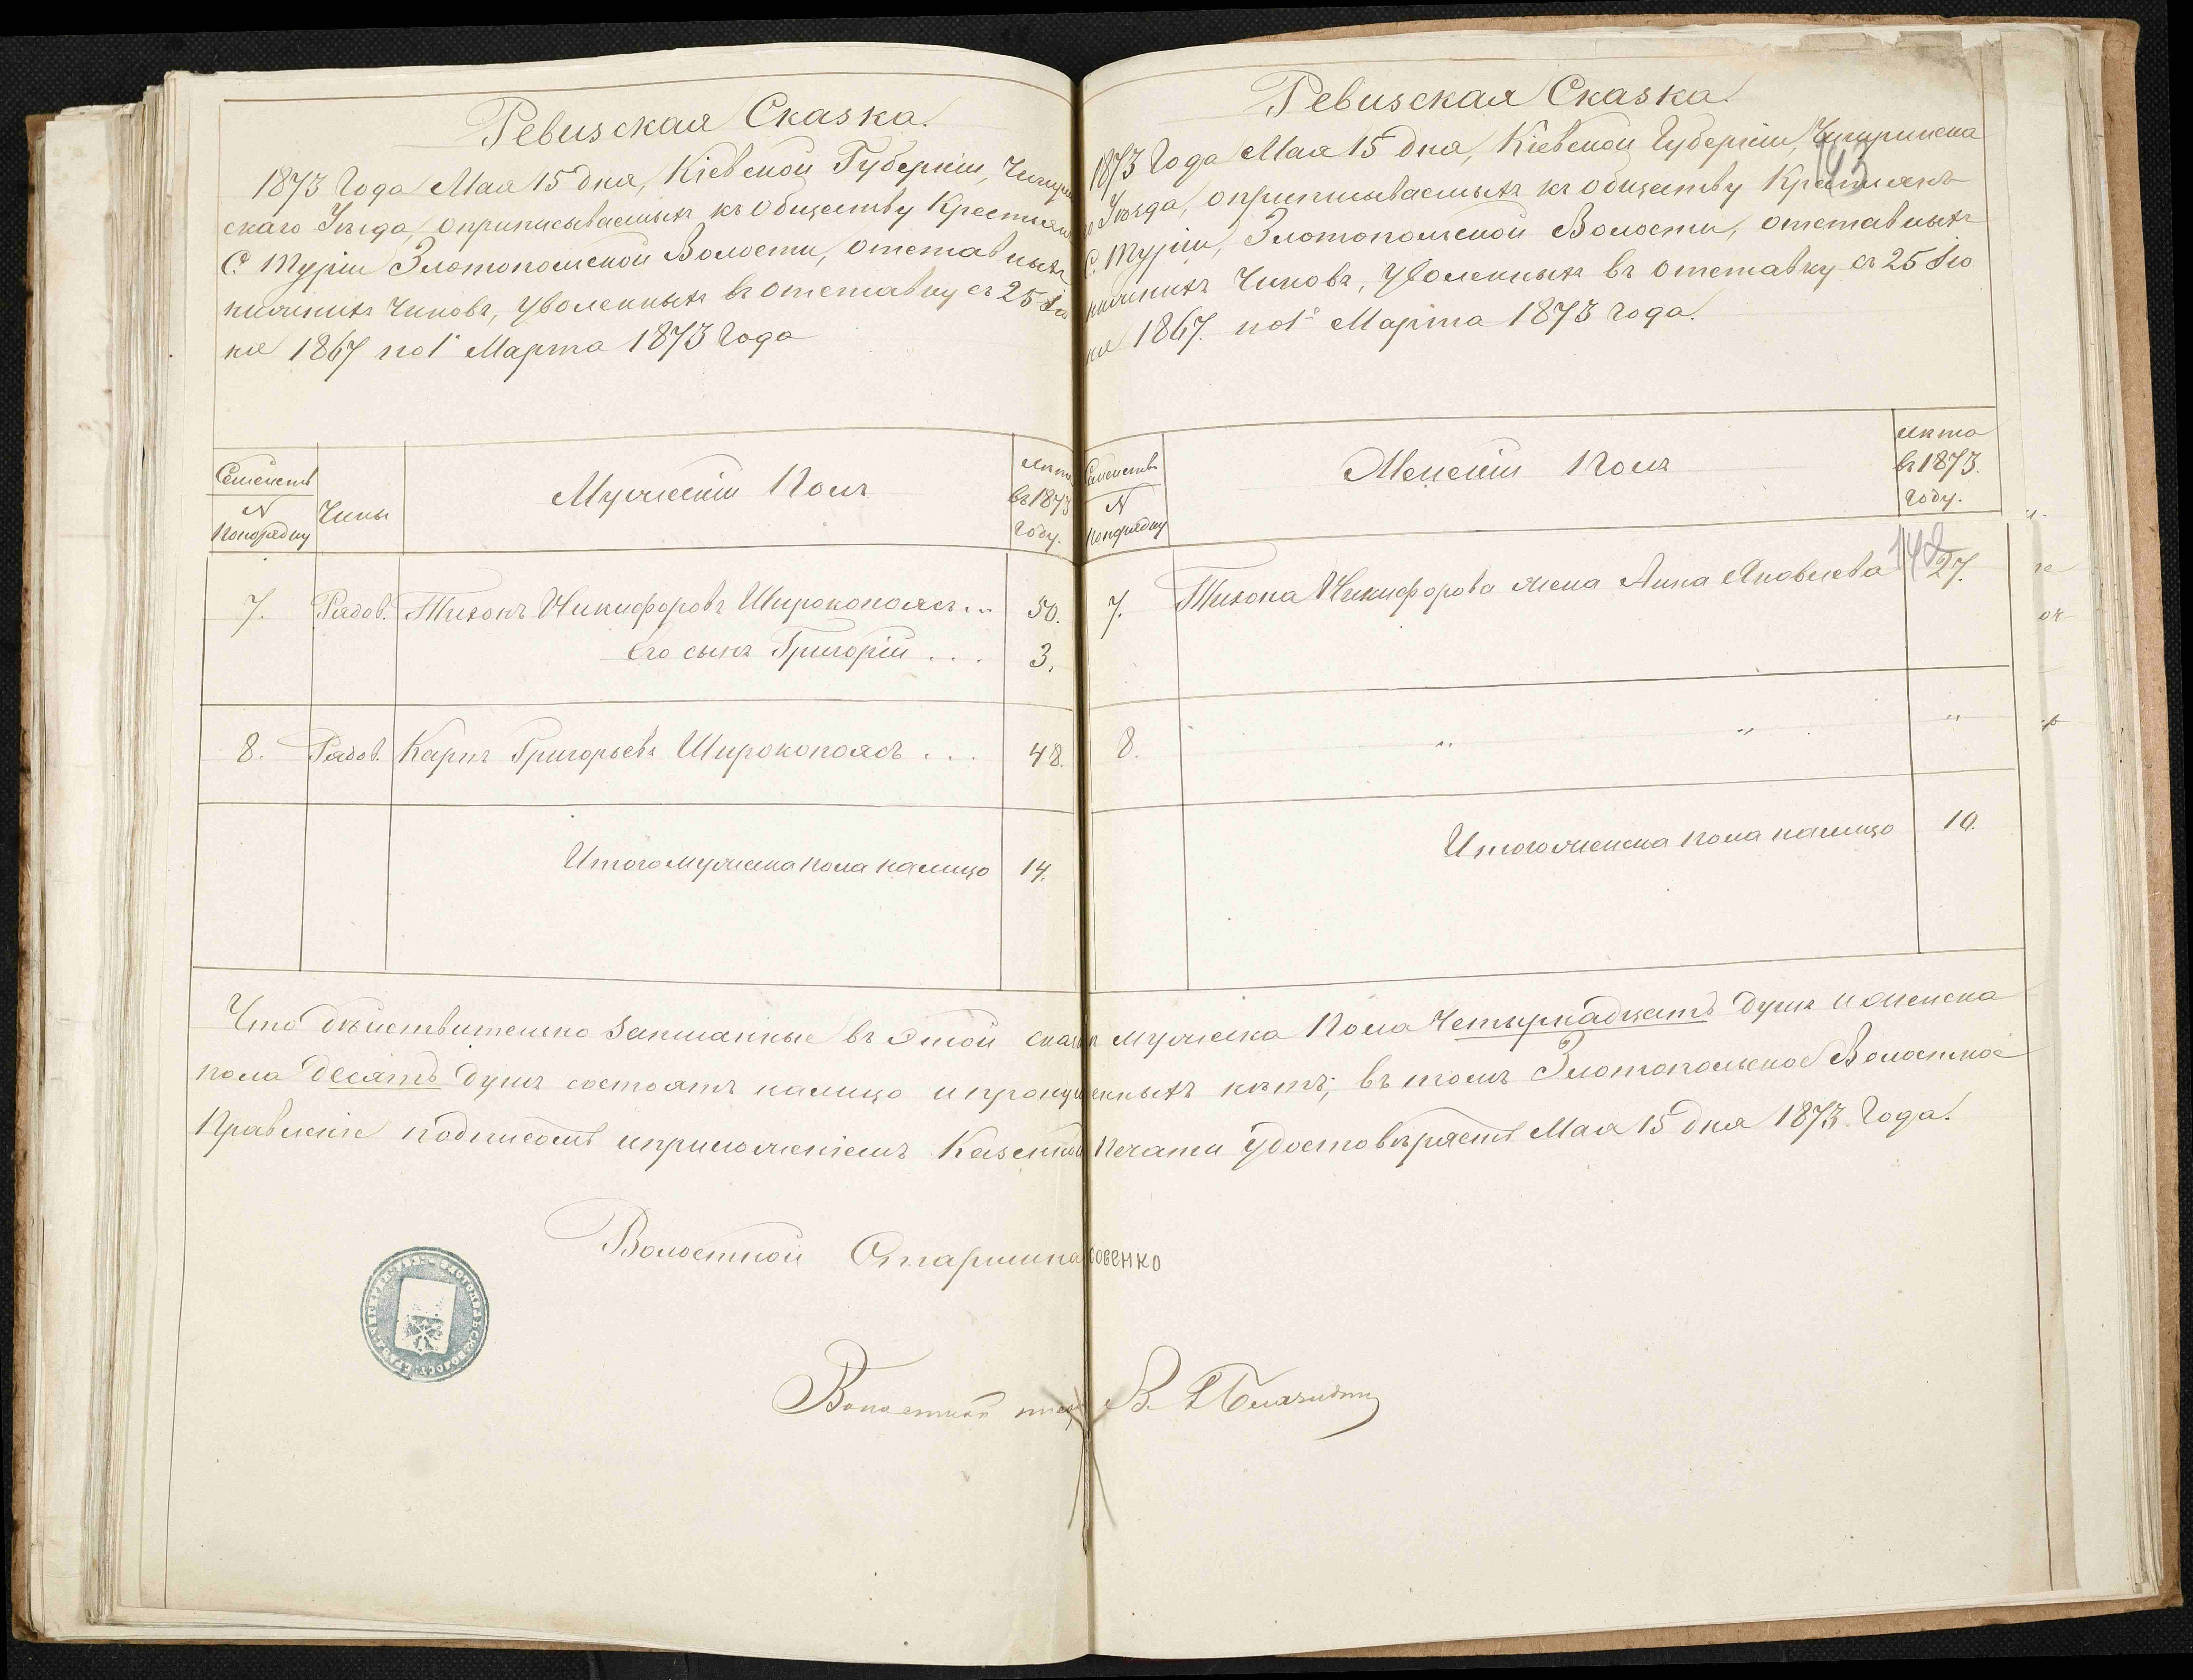 Ревизская Сказка.
1873 Года Мая 15 дня, Кіевской Губерніи, Чигирин
скаго Уѣзда, оприписываемыхъ къ обществу Крестьянъ
С. Туріи Златопольской Волости, отставныхъ
нижнихъ Чиновъ, Уволенныхъ въ отставку съ 25 Iю
ня 1867 по 1е Марта 1873 Года
Семействъ
N
Попорядку
Чины
Мужескій Полъ
Лѣта
въ 1873
Году.
7. Рядов. Тихонъ Никифоровъ Широкопоясъ... 50.
Его сынъ Григорій . . . 3.
8. Рядов. Карпъ Григорьевъ Широкопоясъ . . . 48.
Итого мужеска пола налицо 14.
Ревизская Сказка.
1873 Года Мая 15 дня, Кіевской Губерніи, Чигиринска
го Уѣзда, оприписываемыхъ къ обществу Крестьянъ
С. Туріи, Златопольской Волости, отставныхъ
нижнихъ Чиновъ, Уволенныхъ въ отставку съ 25 Iю
ня 1867. по 1е Марта 1873 Года.
Семействъ
N
Попорядку
Женскій Полъ
Лѣта
въ 1873.
Году.
148
7. Тихона Никифорова жена Анна Яковлева 27.
8. " " "
Итого женска пола налицо 10.
Что дѣйствительно записанные въ этой сказкѣ мужеска Пола Четырнадцать душъ и женска
пола Десять душъ состоятъ налицо и пропущенныхъ нѣтъ; въ томъ Златопольское Волостное
Правленіе подписомъ и приложеніемъ Казенной Печати удостовѣряетъ Мая 15 дня 1873 Года.
Волостной Старшина
Волостной писарь В.